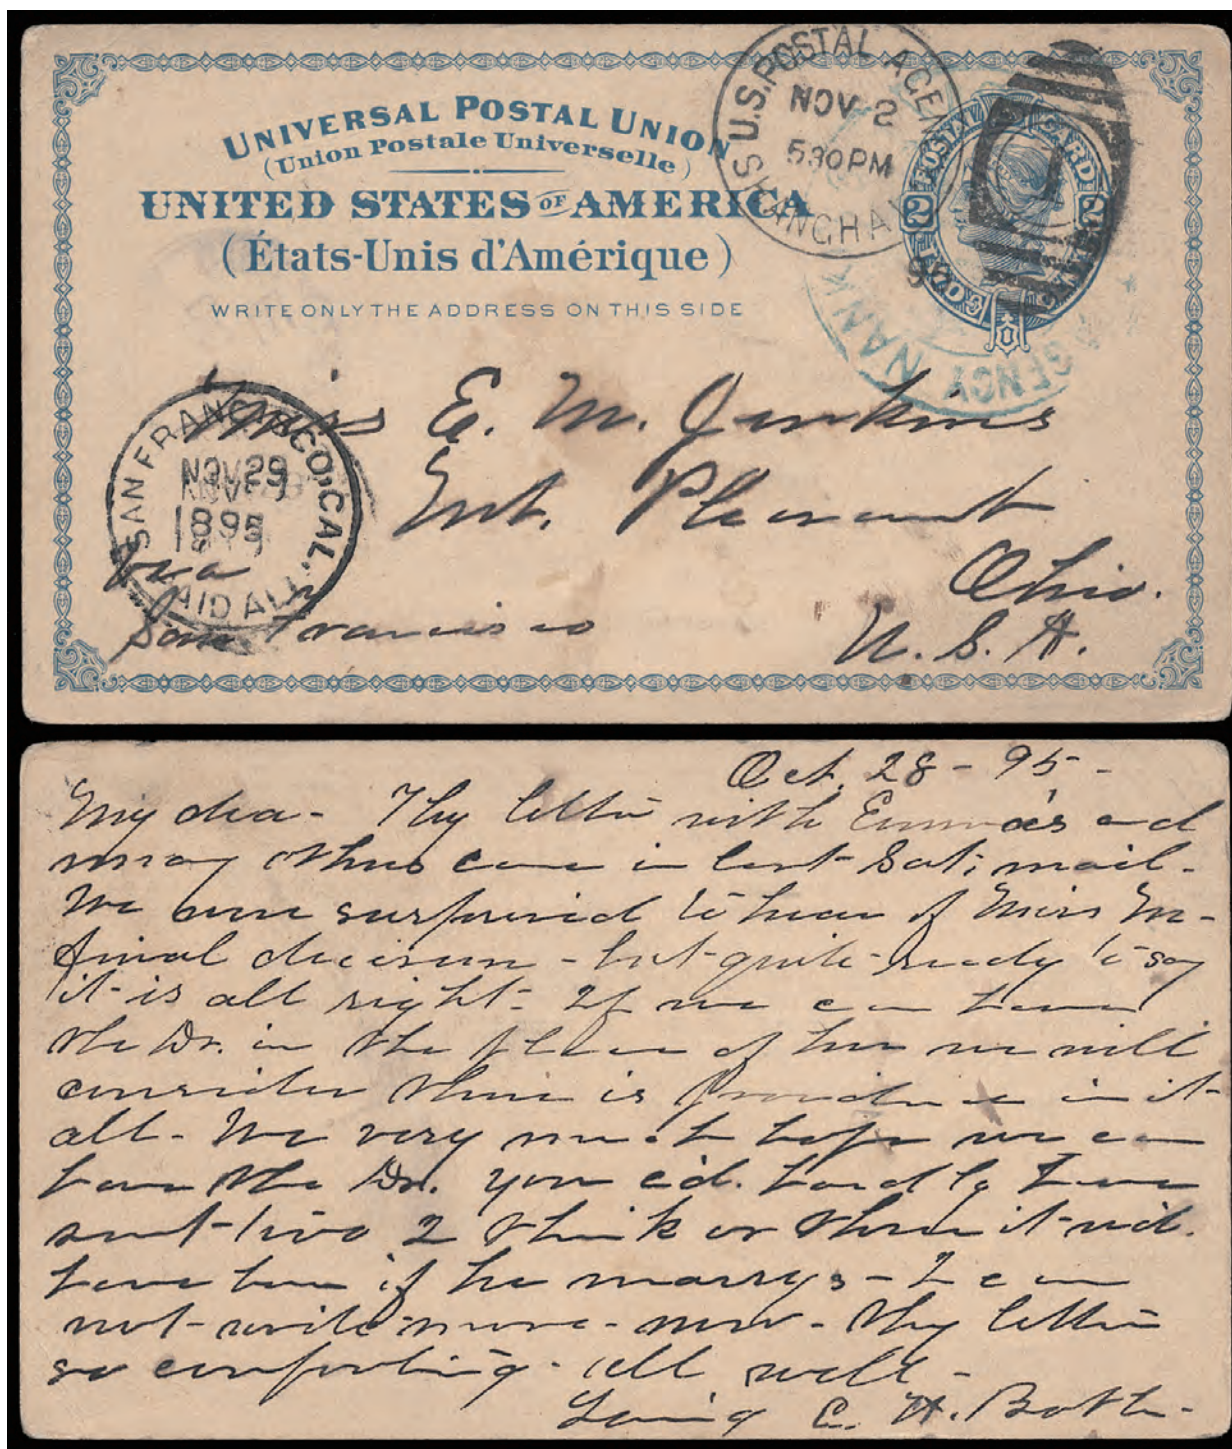 UNIVERSAL POSTAL UNION
(Union Postale Universelle)
UNITED STATES OF AMERICA
(États-Unis d'Amérique)
WRITE ONLY THE ADDRESS ON THIS SIDE
U.S. POSTAL AGEN
NOV 2
530PM
SHANGHAI
9
1
POSTAL CARD
2 2
TWO CENTS
AGENCY NANK
SAN FRANCISCO, CAL.
NOV 29
1895
PAID ALL
Miss E. M. Jenkins
Mt. Pleasant
Ohio.
U. S. A.
Via
San Francisco
Oct. 28 - 95 -
My dea - Thy letter with Emma's and
many others came in last Sat; mail -
We were surprised to hear of Miss M -
final decision - but quite ready to say
it is all right - If we can have
the Dr. in the place of her we will
consider there is providence in it
all - We very much hope we can
have the Dr. you cd. hardly have
sent two I think or there it wd.
have been if he marrys - I can
not write more now - Thy letter
so comforting - all well -
Loving E. H. Butler -